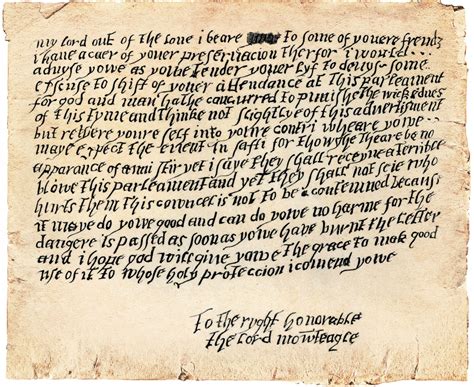 my lord out of the loue i beare to some of youere frends
i haue a caer of youer preseruacion therfor i would
aduyse yowe as yowe tender youer lyf to deuys some
excuse to shift of youer attendance at this parleament
for god and man hathe concurred to punishe the wickednes
of this tyme and thinke not slightlye of this aduertisment
but retyere youre self into youre contri wheare yowe
maye expect the euent in safti for thowghe theare be no
apparance of anni stir yet i saye they shall receyue a terrible
blowe this parleament and yet they shall not seie who
hurts them this councel is not to be contemned because
it maye do yowe good and can do yowe no harme for the
dangere is passed as soon as yowe haue burnt the letter
and i hope god will giue yowe the grace to mak good
use of it to whose holy proteccion i comend yowe
To the ryght honorable
the lord mowteagle